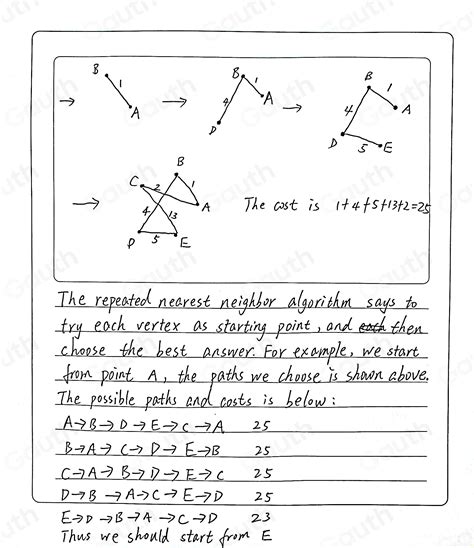 B 1 A
B 1 A 4 D
B 1 A 4 D 5 E
C B 2 1 A 4 13 D 5 E
The cost is 1+4+5+13+2=25
The repeated nearest neighbor algorithm says to
try each vertex as starting point, and then
choose the best answer. For example, we start
from point A, the paths we choose is shown above.
The possible paths and costs is below:
A→B→D→E→C→A 25
B→A→C→D→E→B 25
C→A→B→D→E→C 25
D→B→A→C→E→D 25
E→D→B→A→C→D 23
Thus we should start from E